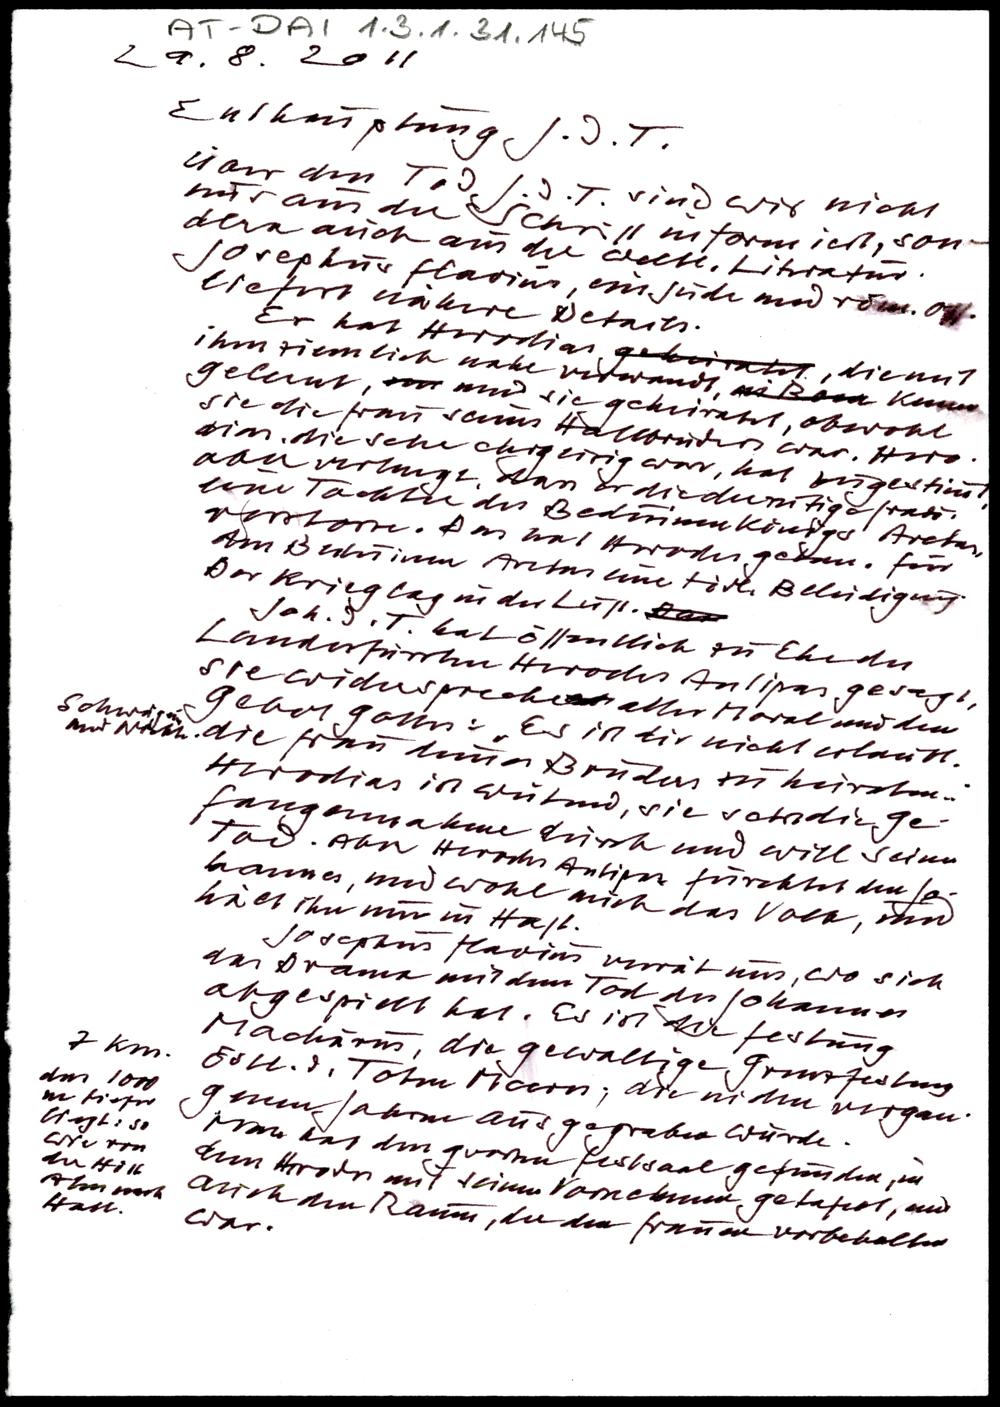 AT-DAI 1.3.1.31.145
29. 8. 2011
Enthauptung J. d. T.
Über den Tod J. d. T. sind wir nicht
nur aus der Schrift informiert, son-
dern auch aus der weltl. Literatur.
Josephus Flavius, ein Jude und röm. Off.
liefert nähere Details.
Er hat Herodias geheiratet, die mit
ihm ziemlich nahe verwandt, kennen
gelernt, und sie geheiratet, obwohl
sie die Frau seines Halbbruders war. Hero-
dias, die sehr ehrgeizig war, hat zugestimmt,
aber verlangt, dass er die derzeitige Frau,
eine Tochter des Beduinenkönigs Aretas,
verstosse. Das hat Herodes getan. Für
den Beduinen Aretas eine tödl. Beleidigung
Der Krieg lag in der Luft. Das
Joh. d. T. hat öffentlich zur Ehe des
Landesfürsten Herodes Antipas gesagt,
sie widerspreche aller Moral und dem
Schweigen
und Nicken.
Gebot Gottes: „Es ist dir nicht erlaubt,
die Frau deines Bruders zu heiraten."
Herodias ist wütend, sie setzt die Ge-
fangennahme durch und will seinen
Tod. Aber Herodes Antipas fürchtet den Jo-
hannes, und wohl auch das Volk, und
hält ihn nur in Haft.
Josephus Flavius verrät uns, wo sich
das Drama mit dem Tod des Johannes
abgespielt hat. Es ist die Festung
Machärus, die gewaltige Grenzfestung
östl. d. Toten Meeres; die in den vergan-
genen Jahren ausgegraben wurde.
Man hat den grossen Festsaal gefunden, in
dem Herodes mit seinen Vornehmen getafelt, und
auch den Raum, der den Frauen vorbehalten
war.
7 km.
das 1000
m tiefer
liegt: so
wie von
der Hill
Alm nach
Hall.